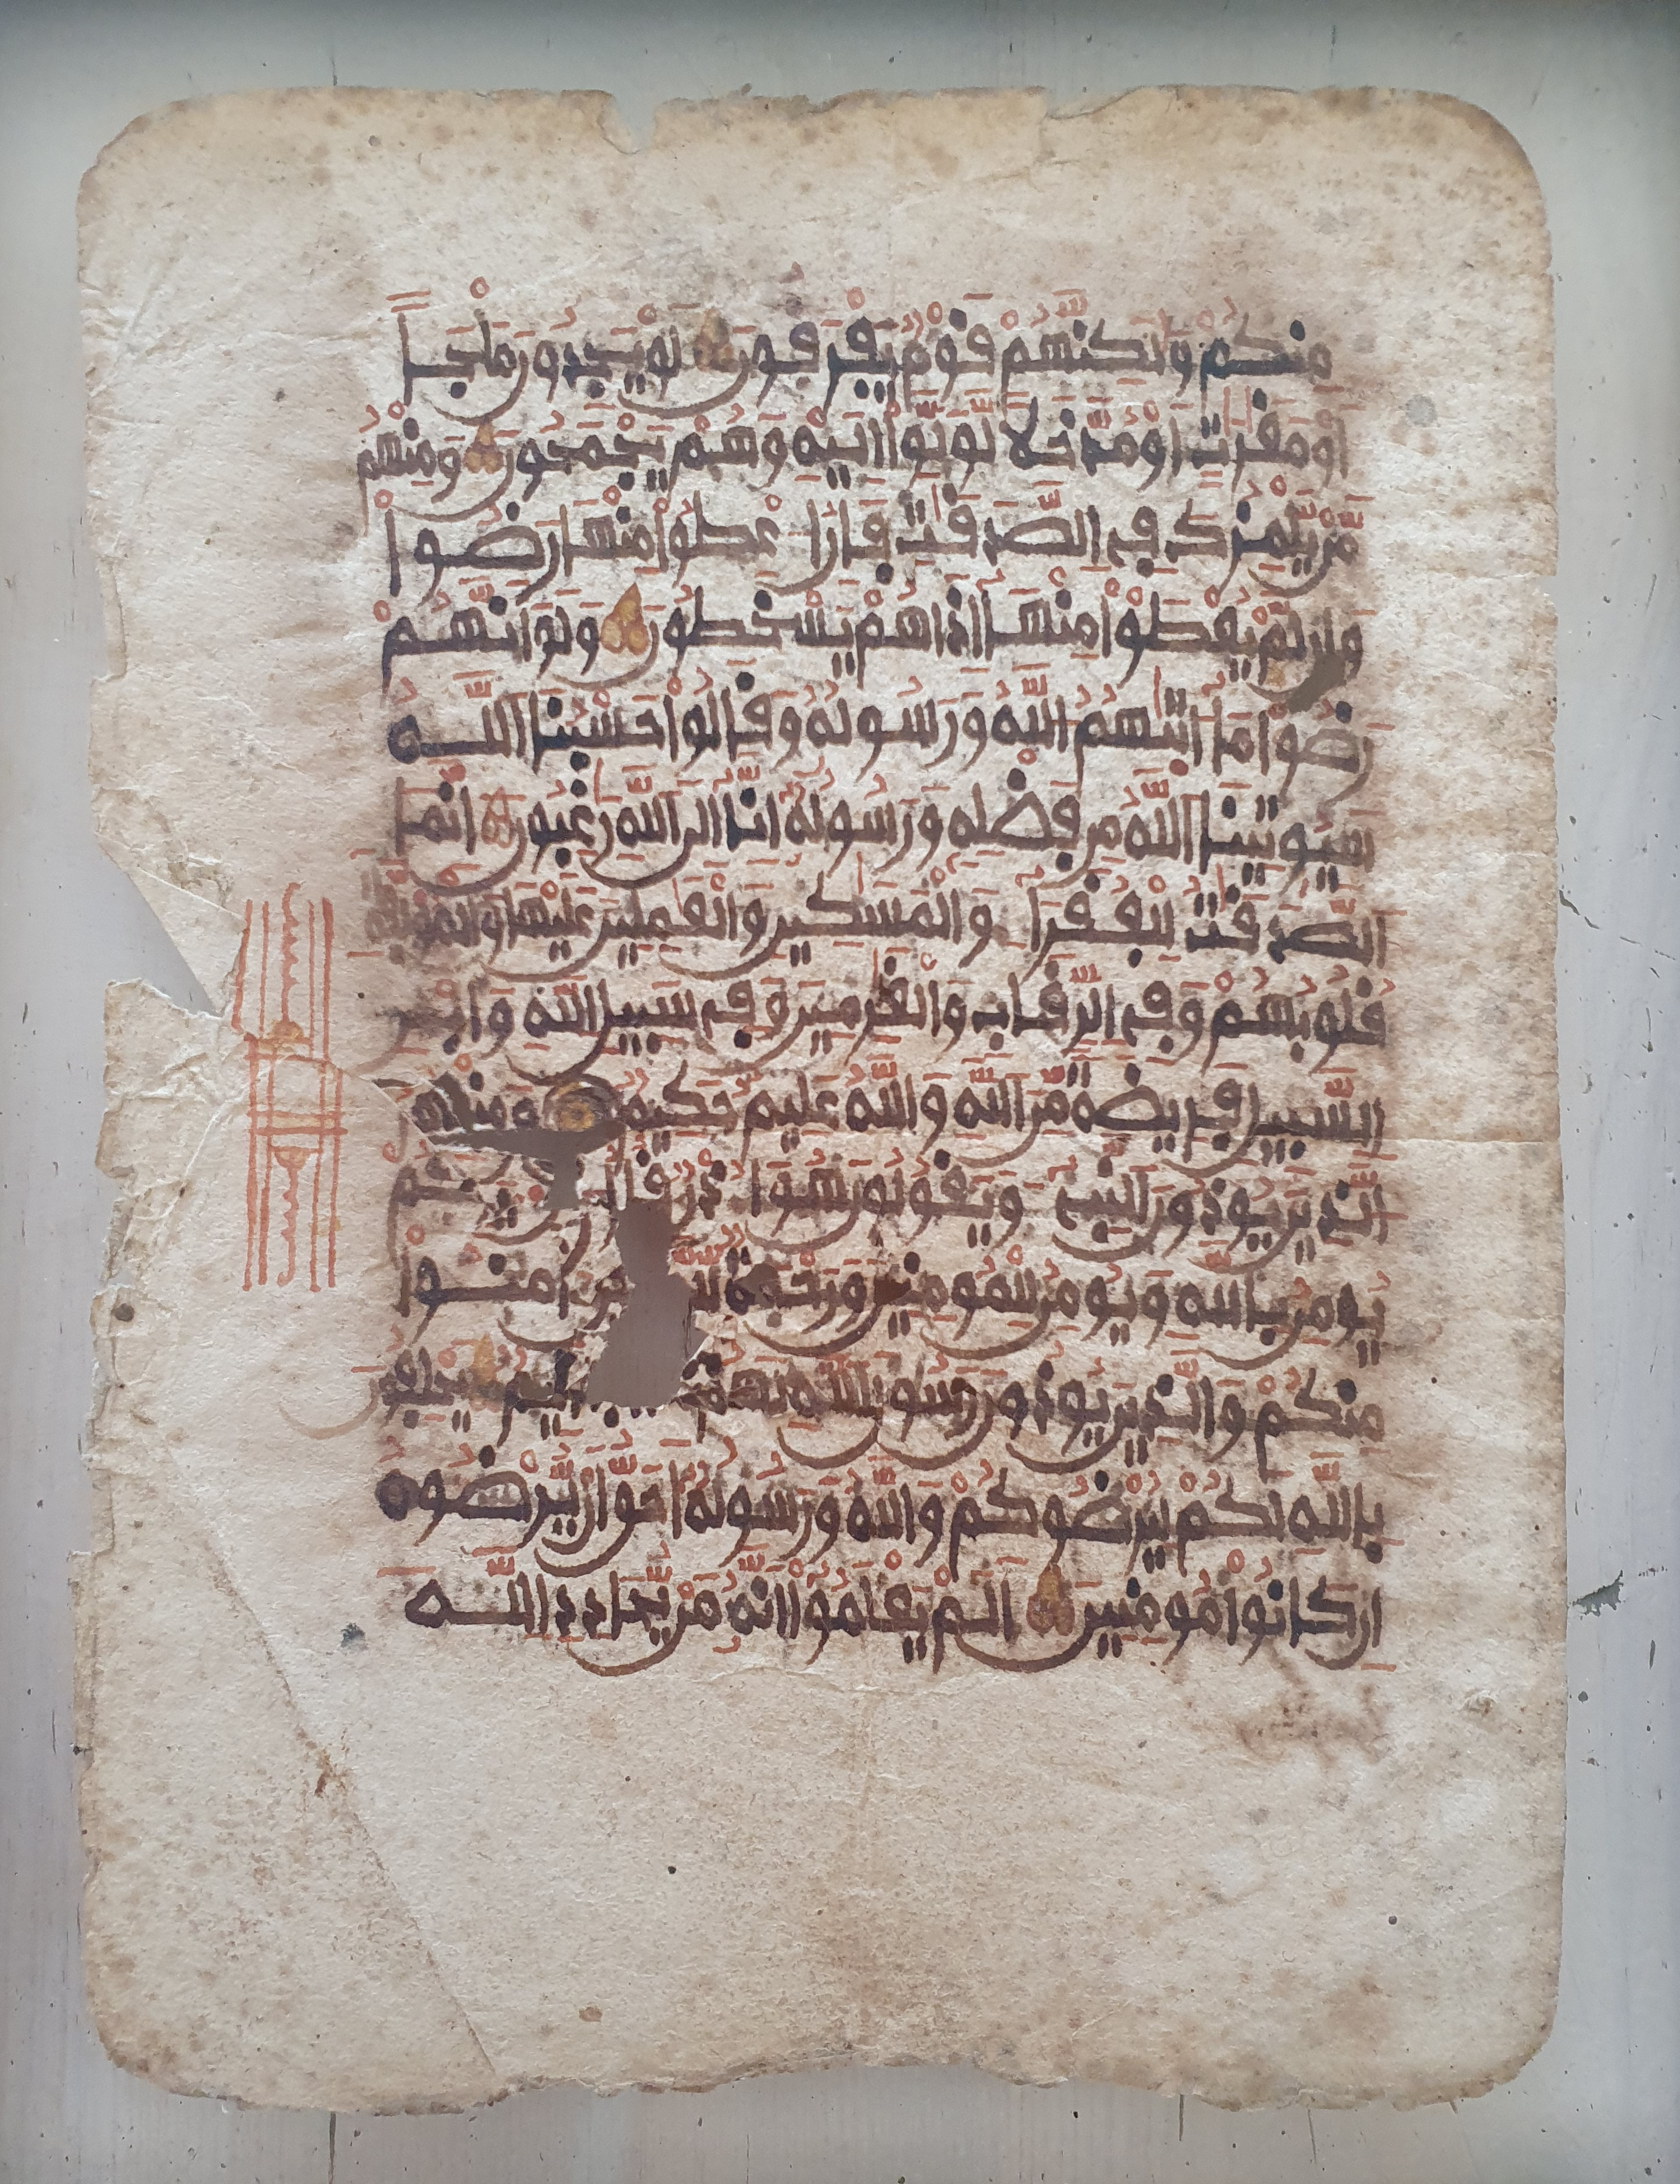 منكم ولكنهم قوم يفرقون لو يجدون ملجا
او مغرت او مدخلا لولوا اليه وهم يجمحون ومنهم
من يلمزك في الصدقت فان اعطوا منها رضوا
وان لم يعطوا منها اذا هم يسخطون ولو انهم
رضوا ما اتيهم الله ورسوله وقالوا حسبنا الله
سيوتينا الله من فضله ورسوله انا الى الله رغبون انما
الصدقت للفقرا والمسكين والعملين عليها والمولفة
قلوبهم وفي الرقاب والغرمين وفي سبيل الله وابن
السبيل فريضة من الله والله عليم حكيم ومنهم
الذين يوذون النبي ويقولون هو اذن قل
يومن بالله ويومن للمومنين ورحمة امنوا
منكم والذين يوذون رسول الله لهم اليم يحلفون
بالله لكم ليرضوكم والله ورسوله احق ان يرضوه
ان كانوا مومنين الم يعلموا انه من يحادد الله